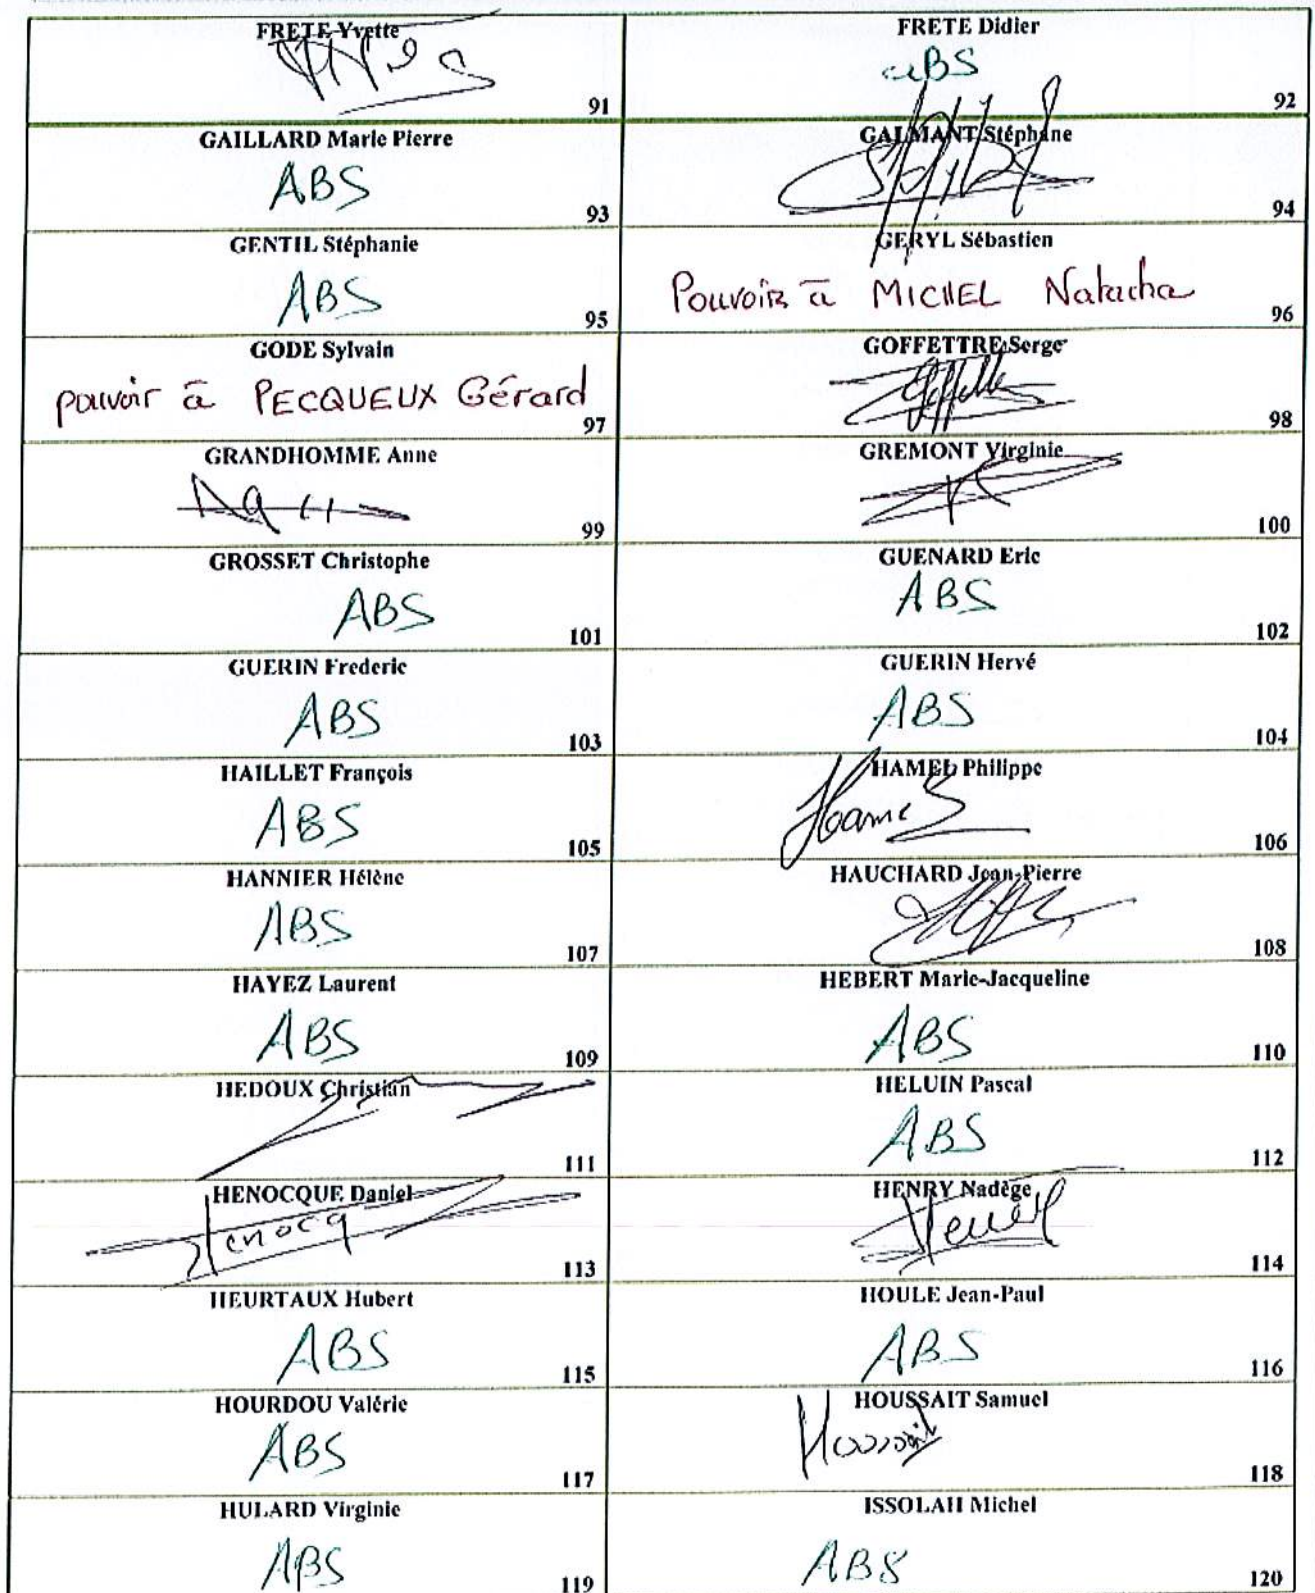 FRETE Yvette
91
FRETE Didier
ABS
92
GAILLARD Marie Pierre
ABS
93
GALMANT Stéphane
94
GENTIL Stéphanie
ABS
95
GERYL Sébastien
Pouvoir à MICHEL Natacha
96
GODE Sylvain
pouvoir à PECQUEUX Gérard
97
GOFFETTRE Serge
98
GRANDHOMME Anne
99
GREMONT Virginie
100
GROSSET Christophe
ABS
101
GUENARD Eric
ABS
102
GUERIN Frederic
ABS
103
GUERIN Hervé
ABS
104
HAILLET François
ABS
105
HAMEL Philippe
106
HANNIER Hélène
ABS
107
HAUCHARD Jean-Pierre
108
HAYEZ Laurent
ABS
109
HEBERT Marie-Jacqueline
ABS
110
HEDOUX Christian
111
HELUIN Pascal
ABS
112
HENOCQUE Daniel
Henocq
113
HENRY Nadège
114
HEURTAUX Hubert
ABS
115
HOULE Jean-Paul
ABS
116
HOURDOU Valérie
ABS
117
HOUSSAIT Samuel
Houssait
118
HULARD Virginie
ABS
119
ISSOLAH Michel
ABS
120